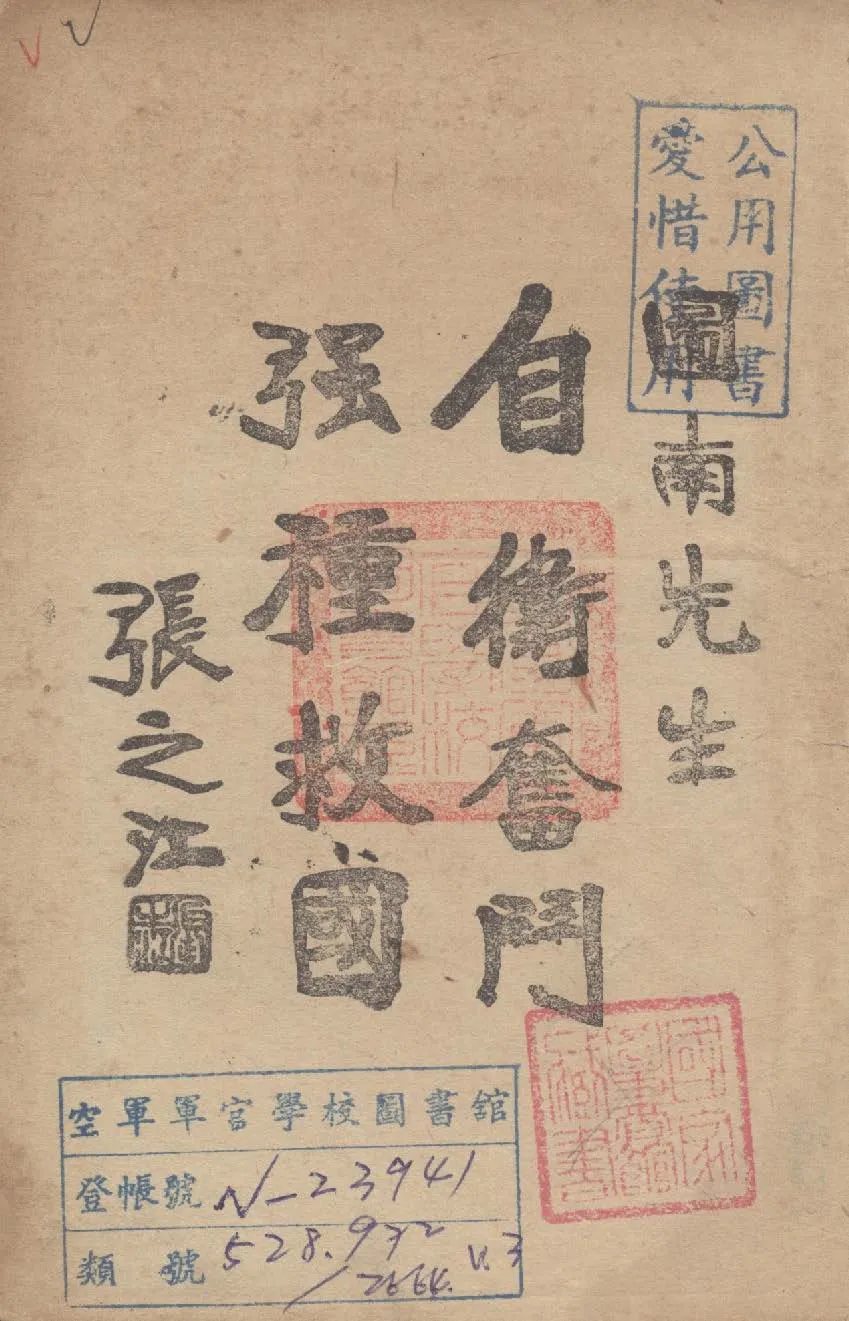 公用圖書
愛惜使用
圖南先生
自衛奮鬥
强種救國
張之江
國家圖書館藏書
空軍軍官學校圖書館
登帳號 N-23941
類號 528.972
/2664 v.3